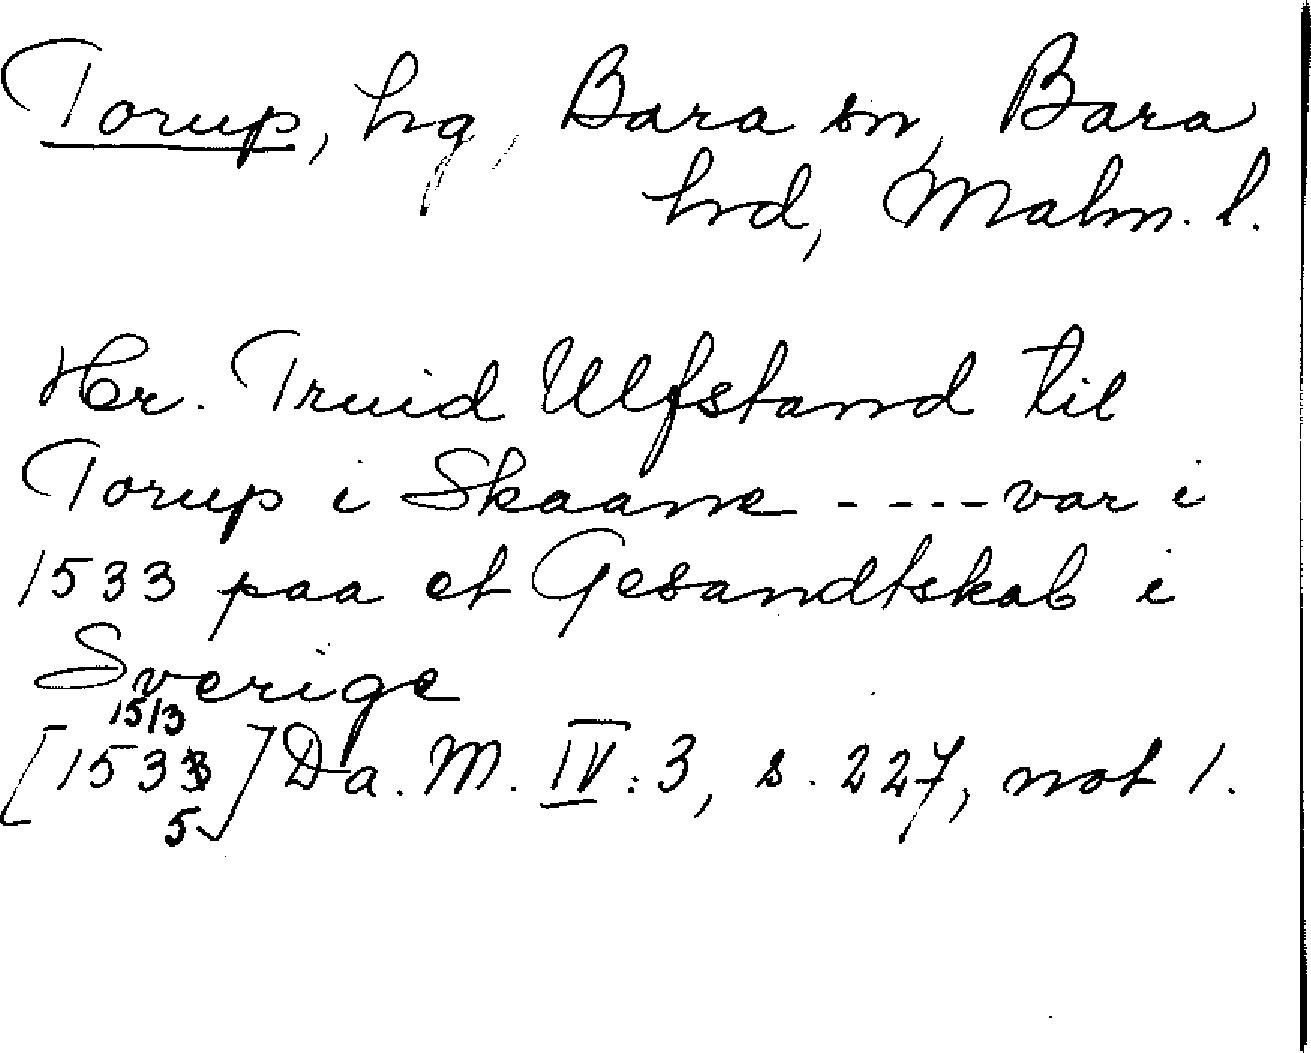 Torup, hg, Bara sn, Bara
hrd, Malm. l.
Hr. Truid Ulfstand til
Torup i Skaane ---- var i
1533 paa et Gesandtskab i
Sverige
15/3
[1533] Da. M. IV: 3, s. 227, not 1.
5